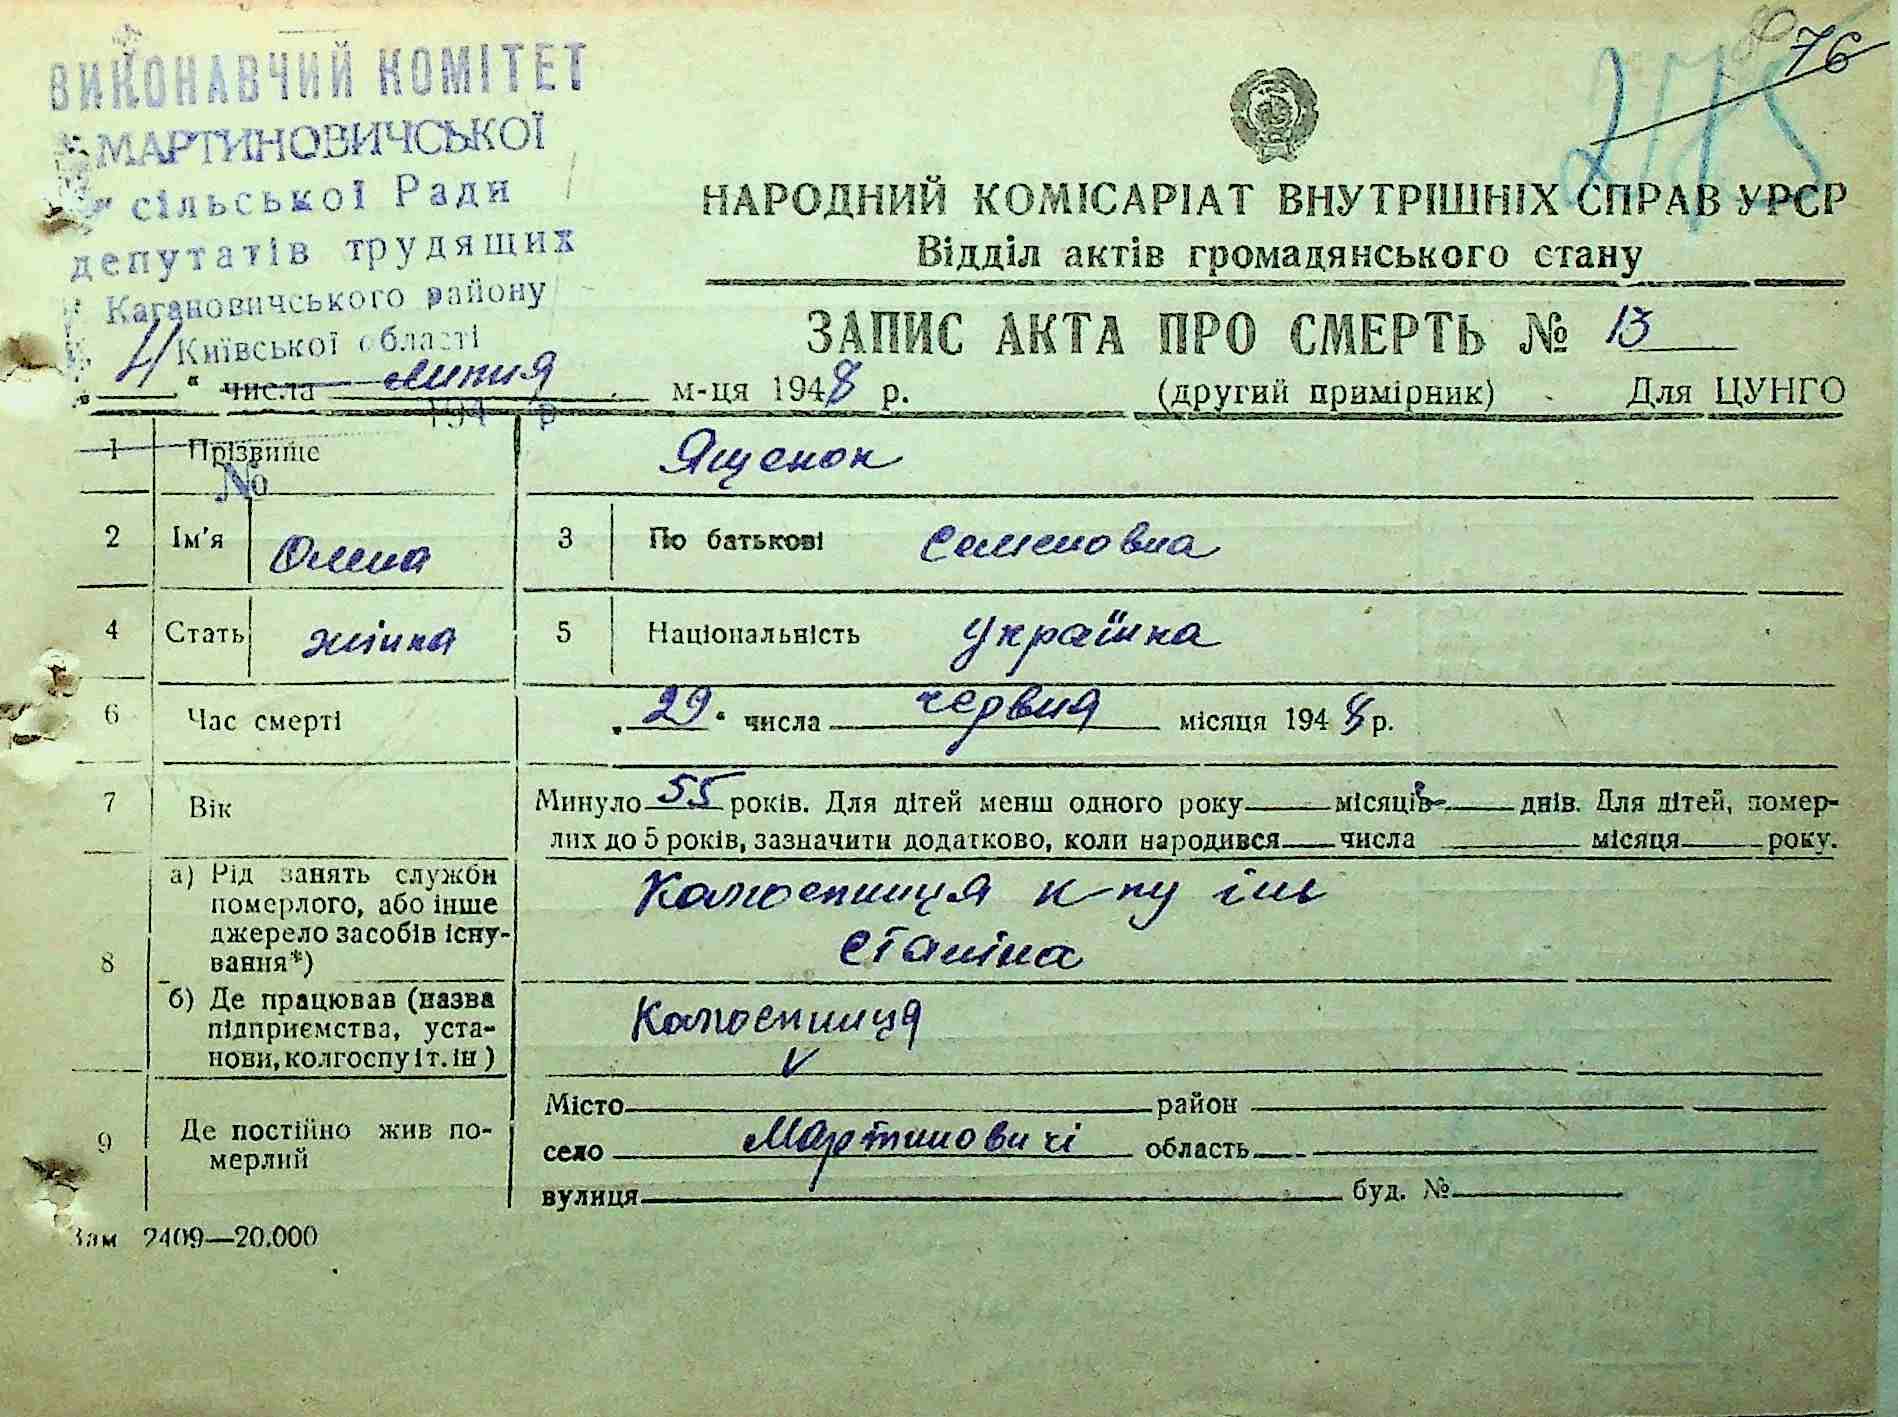 76
275
ВИКОНАВЧИЙ КОМІТЕТ
МАРТИНОВИЧСЬКОЇ
сільської Ради
депутатів трудящих
Кагановичського району
Київської області
194 р
№
НАРОДНИЙ КОМІСАРІАТ ВНУТРІШНІХ СПРАВ УРСР
Відділ актів громадянського стану
ЗАПИС АКТА ПРО СМЕРТЬ № 13
„ “ числа липня м-ця 1948 р. (другий примірник) Для ЦУНГО
1 Прізвище Ященок
2 Ім'я Олена 3 По батькові Семеновна
4 Стать жінка 5 Національність Українка
6 Час смерті „29“ числа червня місяця 1948 р.
7 Вік Минуло 55 років. Для дітей менш одного року місяців днів. Для дітей, помер-
лих до 5 років, зазначити додатково, коли народився числа місяця року.
8 а) Рід занять служби
померлого, або інше
джерело засобів існу-
вання*)
Колгоспниця к-пу ім
Сталіна
б) Де працював (назва
підприємства, уста-
нови, колгоспу і т. ін)
Колгоспниця
9 Де постійно жив по-
мерлий
Місто район
село Мартиновичі область
вулиця буд. №
Зам 2409—20.000